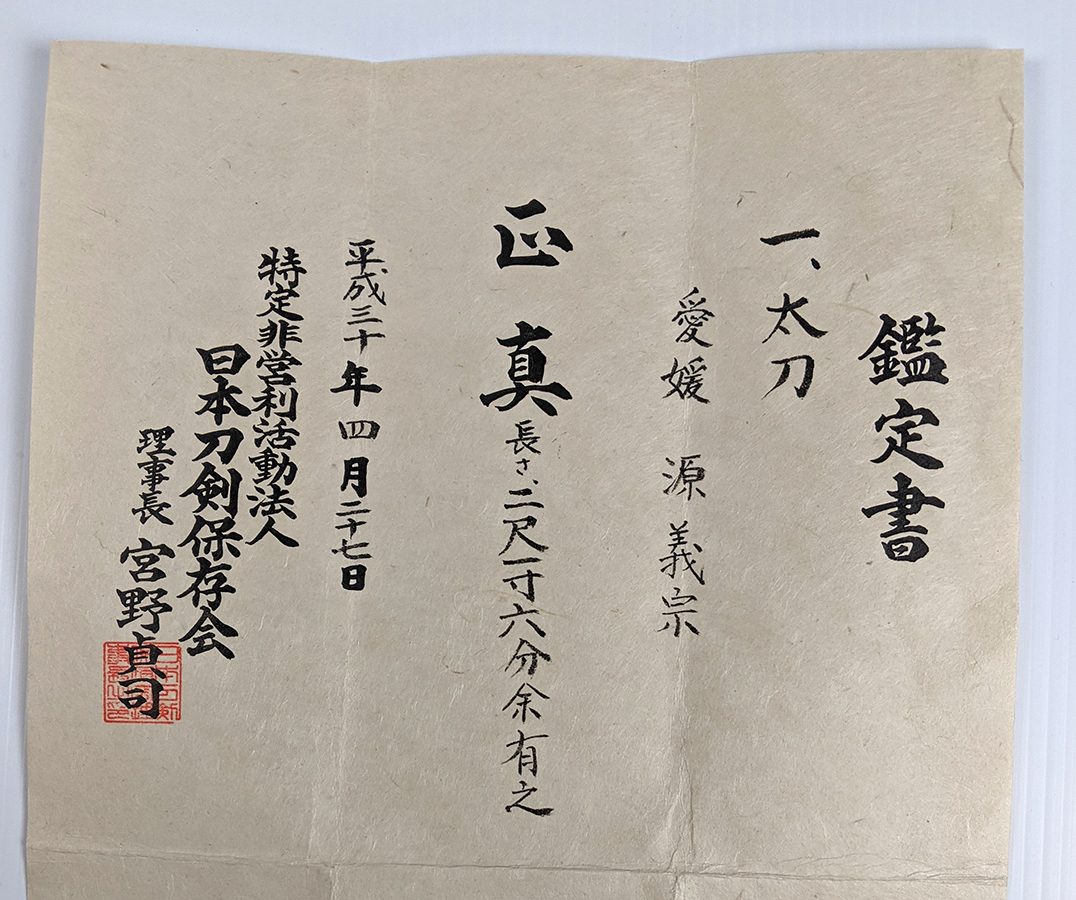 鑑定書
一、太刀
愛媛 源義宗
正真 長さ、二尺一寸六分余有之
平成三十年四月二十七日
特定非営利活動法人
日本刀剣保存会
理事長 宮野貞司